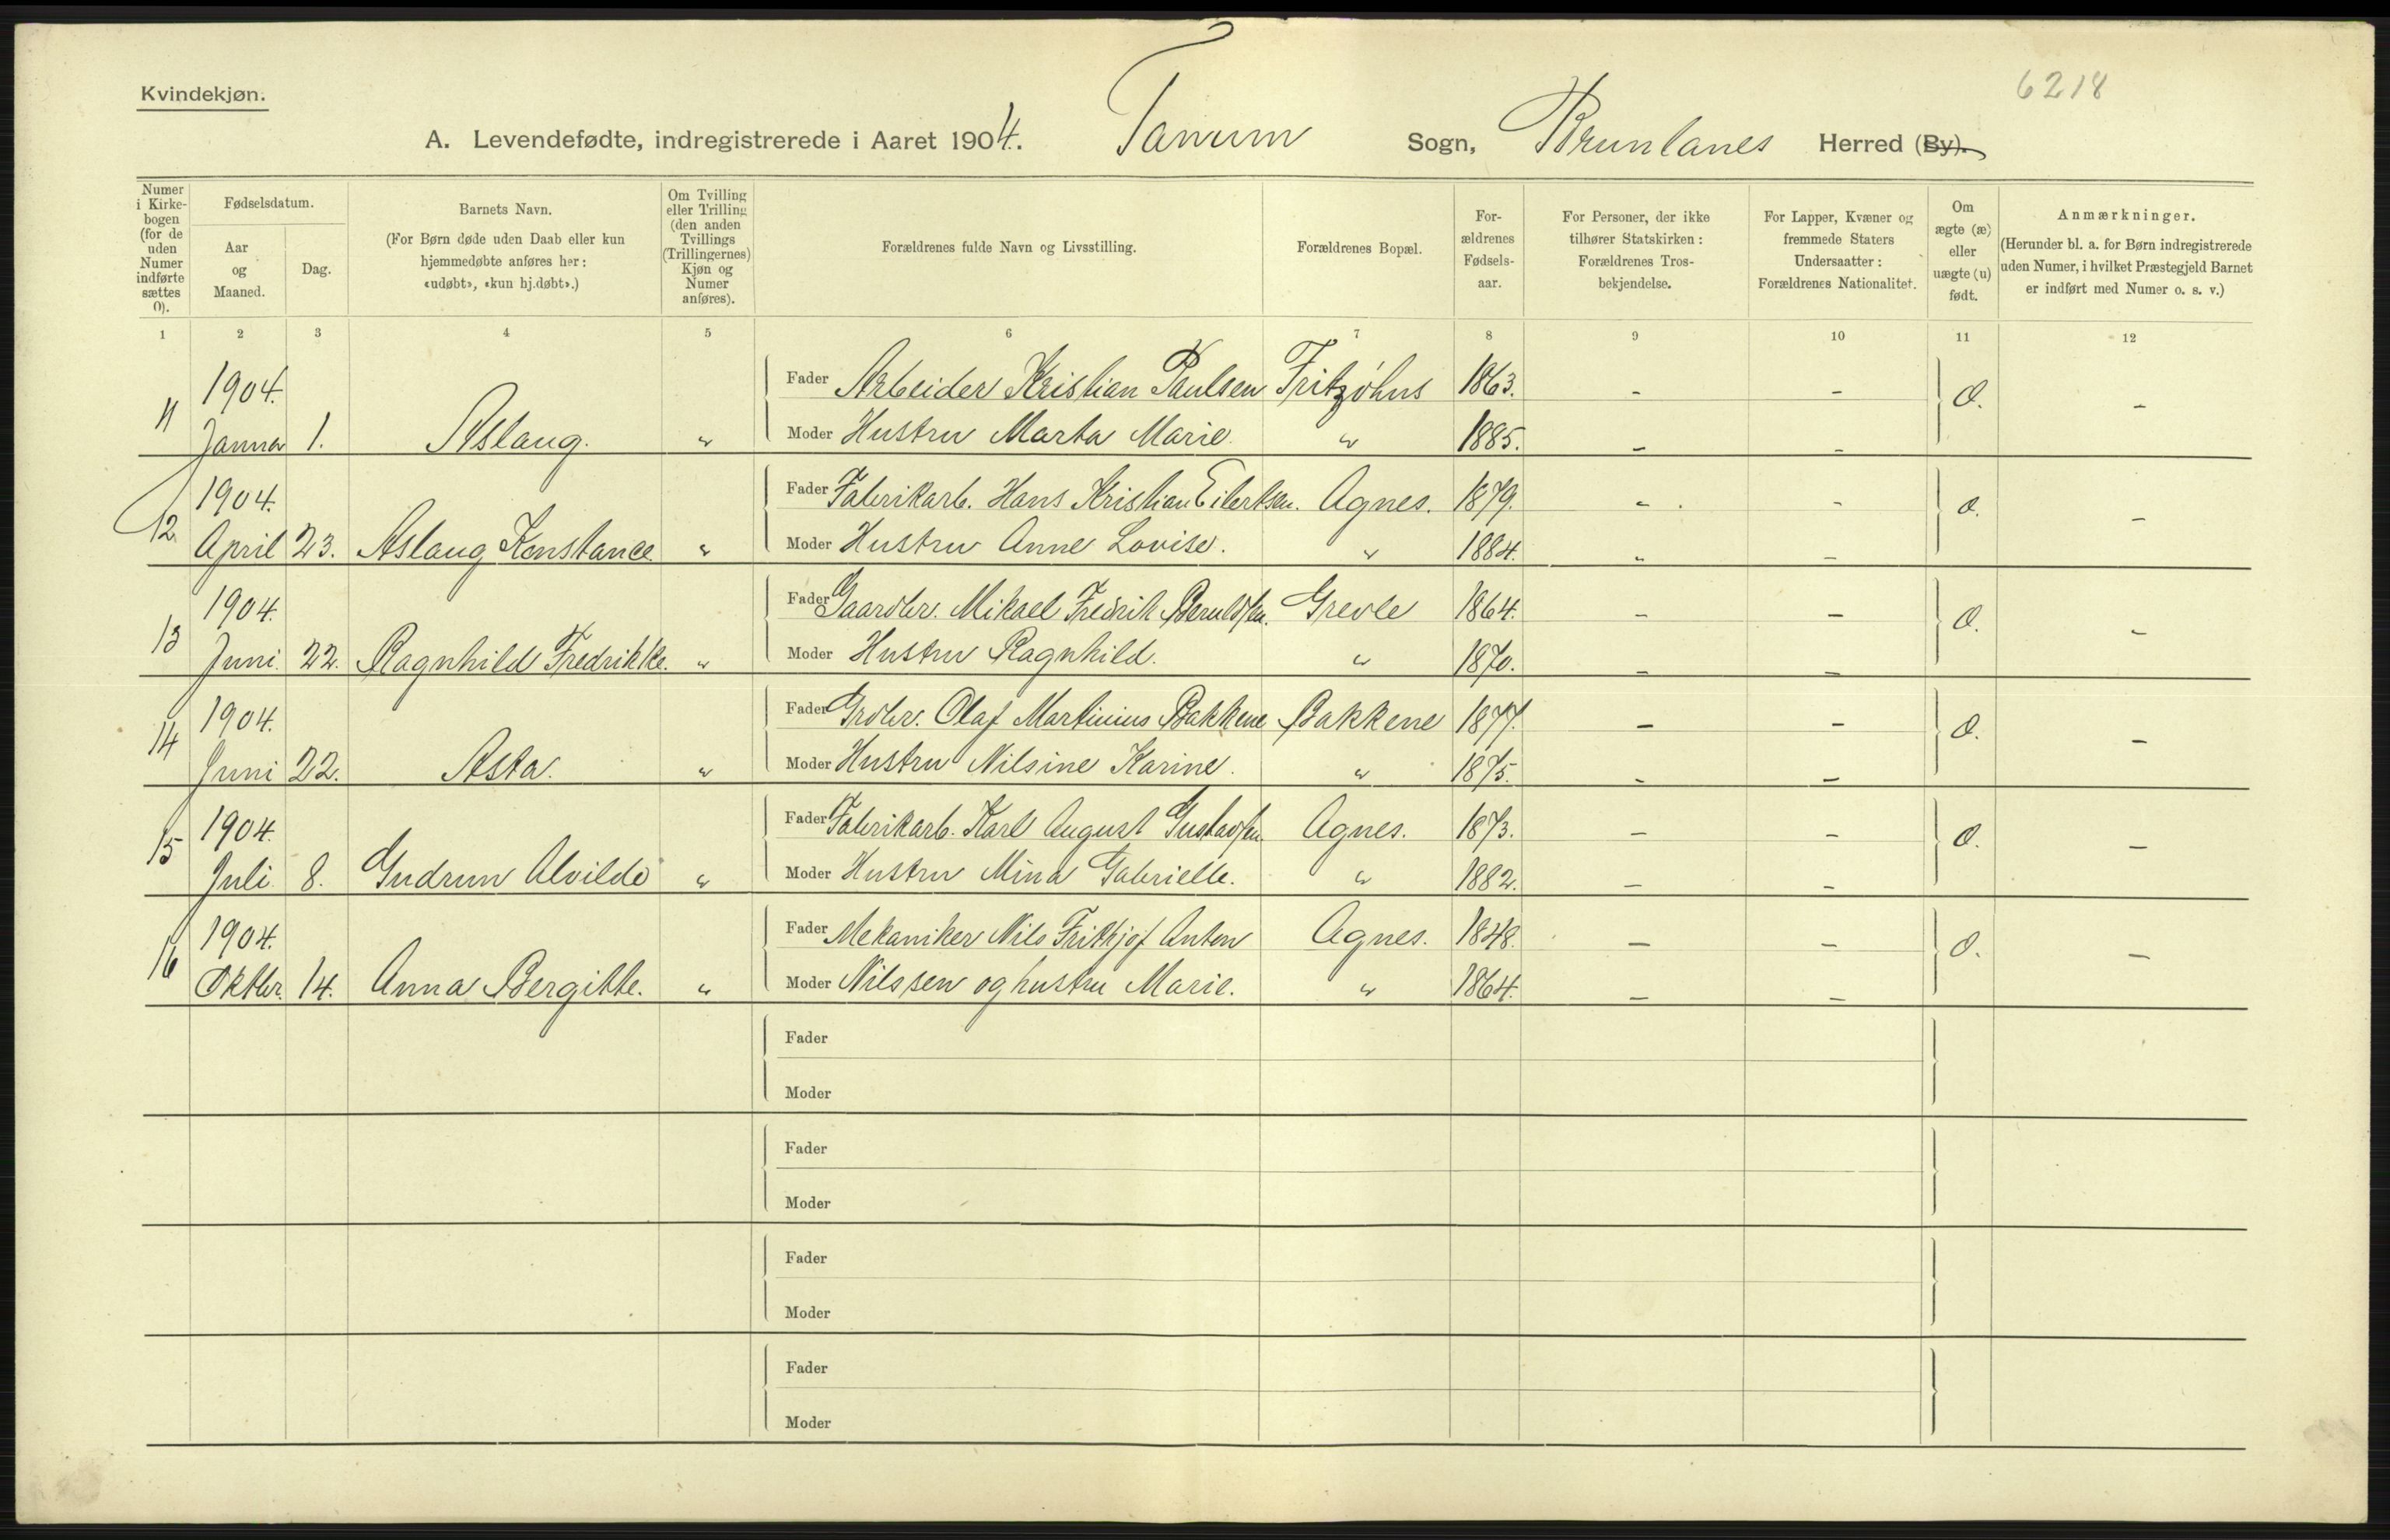 6218
Kvindekjøn.
A. Levendefødte, indregistrerede i Aaret 1904. Tanum Sogn, Brunlanes Herred (By).
Numer i Kirkebogen (for de uden Numer indførte sættes 0).
Fødselsdatum.
Aar og Maaned.
Dag.
Barnets Navn.
(For Børn døde uden Daab eller kun hjemmedøbte anføres her: «udøbt», «kun hj.døbt».)
Om Tvilling eller Trilling (den anden Tvillings (Trillingernes) Kjøn og Numer anføres).
Forældrenes fulde Navn og Livsstilling.
Forældrenes Bopæl.
Forældrenes Fødselsaar.
For Personer, der ikke tilhører Statskirken: Forældrenes Trosbekjendelse.
For Lapper, Kvæner og fremmede Staters Undersaatter: Forældrenes Nationalitet.
Om ægte (æ) eller uægte (u) født.
Anmærkninger.
(Herunder bl. a. for Børn indregistrerede uden Numer, i hvilket Præstegjeld Barnet er indført med Numer o. s. v.)
1 2 3 4 5 6 7 8 9 10 11 12
1904. Fader Arbeider Kristian Paulsen Fritzøhus 1863. - -
11 Januar 1. Aslaug. " Moder Hustru Marta Marie. " 1885. - - -
1904. Fader Fabrikarb. Hans Kristian Eilertsen. Agnes. 1879. - -
12. April 23. Aslaug Konstance " Moder Hustru Anne Lovise. " 1884. - - -
1904. Fader Gaardbr. Mikael Fredrik Beruldsen. Grevle 1864. - -
13 Juni. 22. Ragnhild Fredrikke. " Moder Hustru Ragnhild. " 1870. - - -
1904. Fader Grdbr. Olaf Martinius Bakkene Bakkene 1877. - -
14 Juni 22. Asta. " Moder Hustru Nilsine Karine. " 1875. - - -
1904. Fader Fabrikarb. Karl August Gustavsen. Agnes. 1873. - -
15 Juli. 8. Gudrun Alvilde " Moder Hustru Mina Gabrielle. " 1882. - - -
1904. Fader Mekaniker Nils Frithjof Anton Agnes. 1848. - -
16 Oktbr. 14. Anna Bergitte. " Moder Nilssen og hustru Marie. " 1864. - - -
Fader
Moder
Fader
Moder
Fader
Moder
Fader
Moder